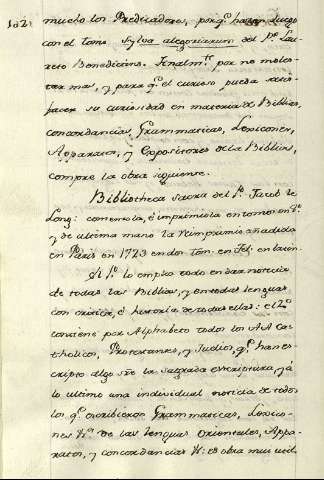 182
mucho los Predicadores, porq.e hazen luego
con el tomo Sylva alegoriarum del P.e Lau-
reto Benedictino. Finalm.te por no moles-
tar mas, y para q.e el curioso pueda satis-
facer su curiosidad en materia de Biblias,
concordancias, Grammaticas, Lexicones,
Apparatos, y Expositores de la Biblia,
compre la obra siguiente.
Bibliotheca sacra del P.e Jacob le
Long: comenzola, é imprimiola en tomos en 8.o
y de ultima mano la reimprimió añadida
en Paris en 1723 en dos tom. en fol. en latin.
El 1.o lo empleo todo en dar noticia
de todas las Biblias, y en todas lenguas,
con critica, é historia de todas ellas: el 2.o
contiene por Alphabeto todos los AA Ca-
tholicos, Protestantes, y Judios, q.e han es-
cripto algo s.re la sagrada escriptura, y á
lo ultimo una individual noticia de todos
los q.e escribieron Grammaticas, Lexico-
nes &.a de las lenguas Orientales, Appa-
ratos, y concordancias &: es obra mui util